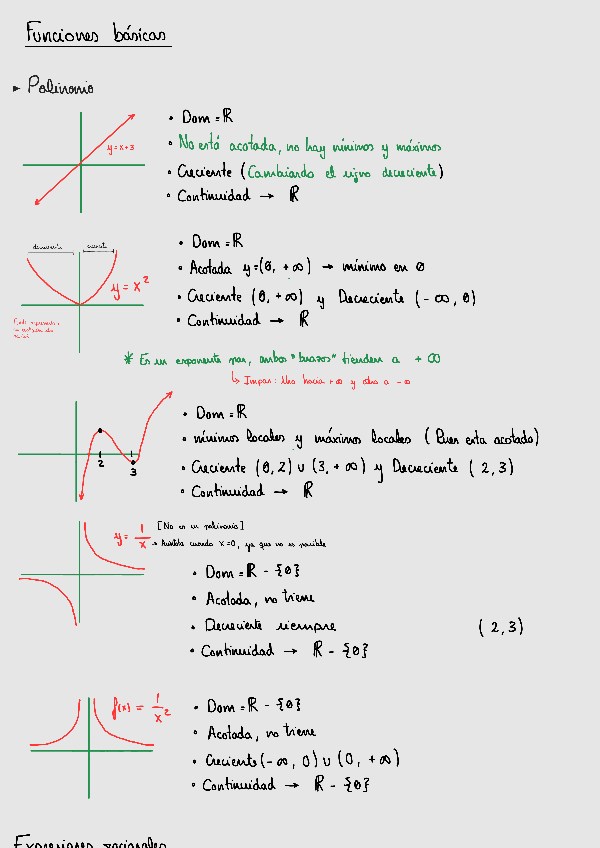 Funciones básicas
► Polinomio
y = x + 3
• Dom = ℝ
• No está acotada, no hay mínimos y máximos
• Creciente (Cambiando el signo decreciente)
• Continuidad → ℝ
decreciente creciente
y = x²
• Dom = ℝ
• Acotada y=(0, +∞) → mínimo en 0
• Creciente (0, +∞) y Decreciente (-∞, 0)
• Continuidad → ℝ
* Es un exponente par, ambos "brazos" tienden a +∞
↳ Impar: Uno hacia +∞ y otro a -∞
2 3
• Dom = ℝ
• mínimos locales y máximos locales (
esta acotado)
• Creciente (0, 2) ∪ (3, +∞) y Decreciente (2, 3)
• Continuidad → ℝ
y = 1/x
[No es un polinomio]
→
cuando x=0, ya que no es posible
• Dom = ℝ - {0}
• Acotada, no tiene
• Decreciente siempre (2, 3)
• Continuidad → ℝ - {0}
f(x) = 1/x²
• Dom = ℝ - {0}
• Acotada, no tiene
• Creciente (-∞, 0) ∪ (0, +∞)
• Continuidad → ℝ - {0}
Expresiones racionales